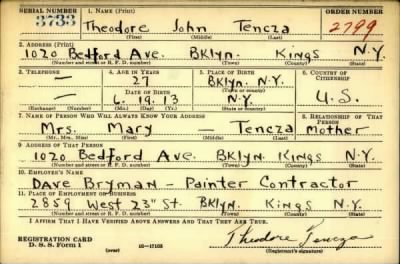 SERIAL NUMBER 1. NAME (Print) ORDER NUMBER
3733 Theodore John Tencza 2799
(First) (Middle) (Last)
2. ADDRESS (Print)
1020 Bedford Ave. BKlyn. Kings N.Y.
(Number and street or R. F. D. number) (Town) (County) (State)
3. TELEPHONE 4. AGE IN YEARS 5. PLACE OF BIRTH 6. COUNTRY OF CITIZENSHIP
— 27 BKlyn.
(Town or county)
DATE OF BIRTH
— 6. 19. 13 N.Y. U.S.
(Exchange) (Number) (Mo.) (Day) (Yr.) (State or country)
7. NAME OF PERSON WHO WILL ALWAYS KNOW YOUR ADDRESS 8. RELATIONSHIP OF THAT PERSON
Mrs. Mary — Tencza Mother
(Mr., Mrs., Miss) (First) (Middle) (Last)
9. ADDRESS OF THAT PERSON
1020 Bedford Ave. BKlyn. Kings N.Y.
(Number and street or R. F. D. number) (Town) (County) (State)
10. EMPLOYER'S NAME
Dave Bryman - Painter Contractor
11. PLACE OF EMPLOYMENT OR BUSINESS
2859 West 23rd St. BKlyn. Kings N.Y.
(Number and street or R. F. D. number) (Town) (County) (State)
I AFFIRM THAT I HAVE VERIFIED ABOVE ANSWERS AND THAT THEY ARE TRUE.
REGISTRATION CARD
D. S. S. Form 1 (over) 16-17105 Theodore Tencza
(Registrant's signature)